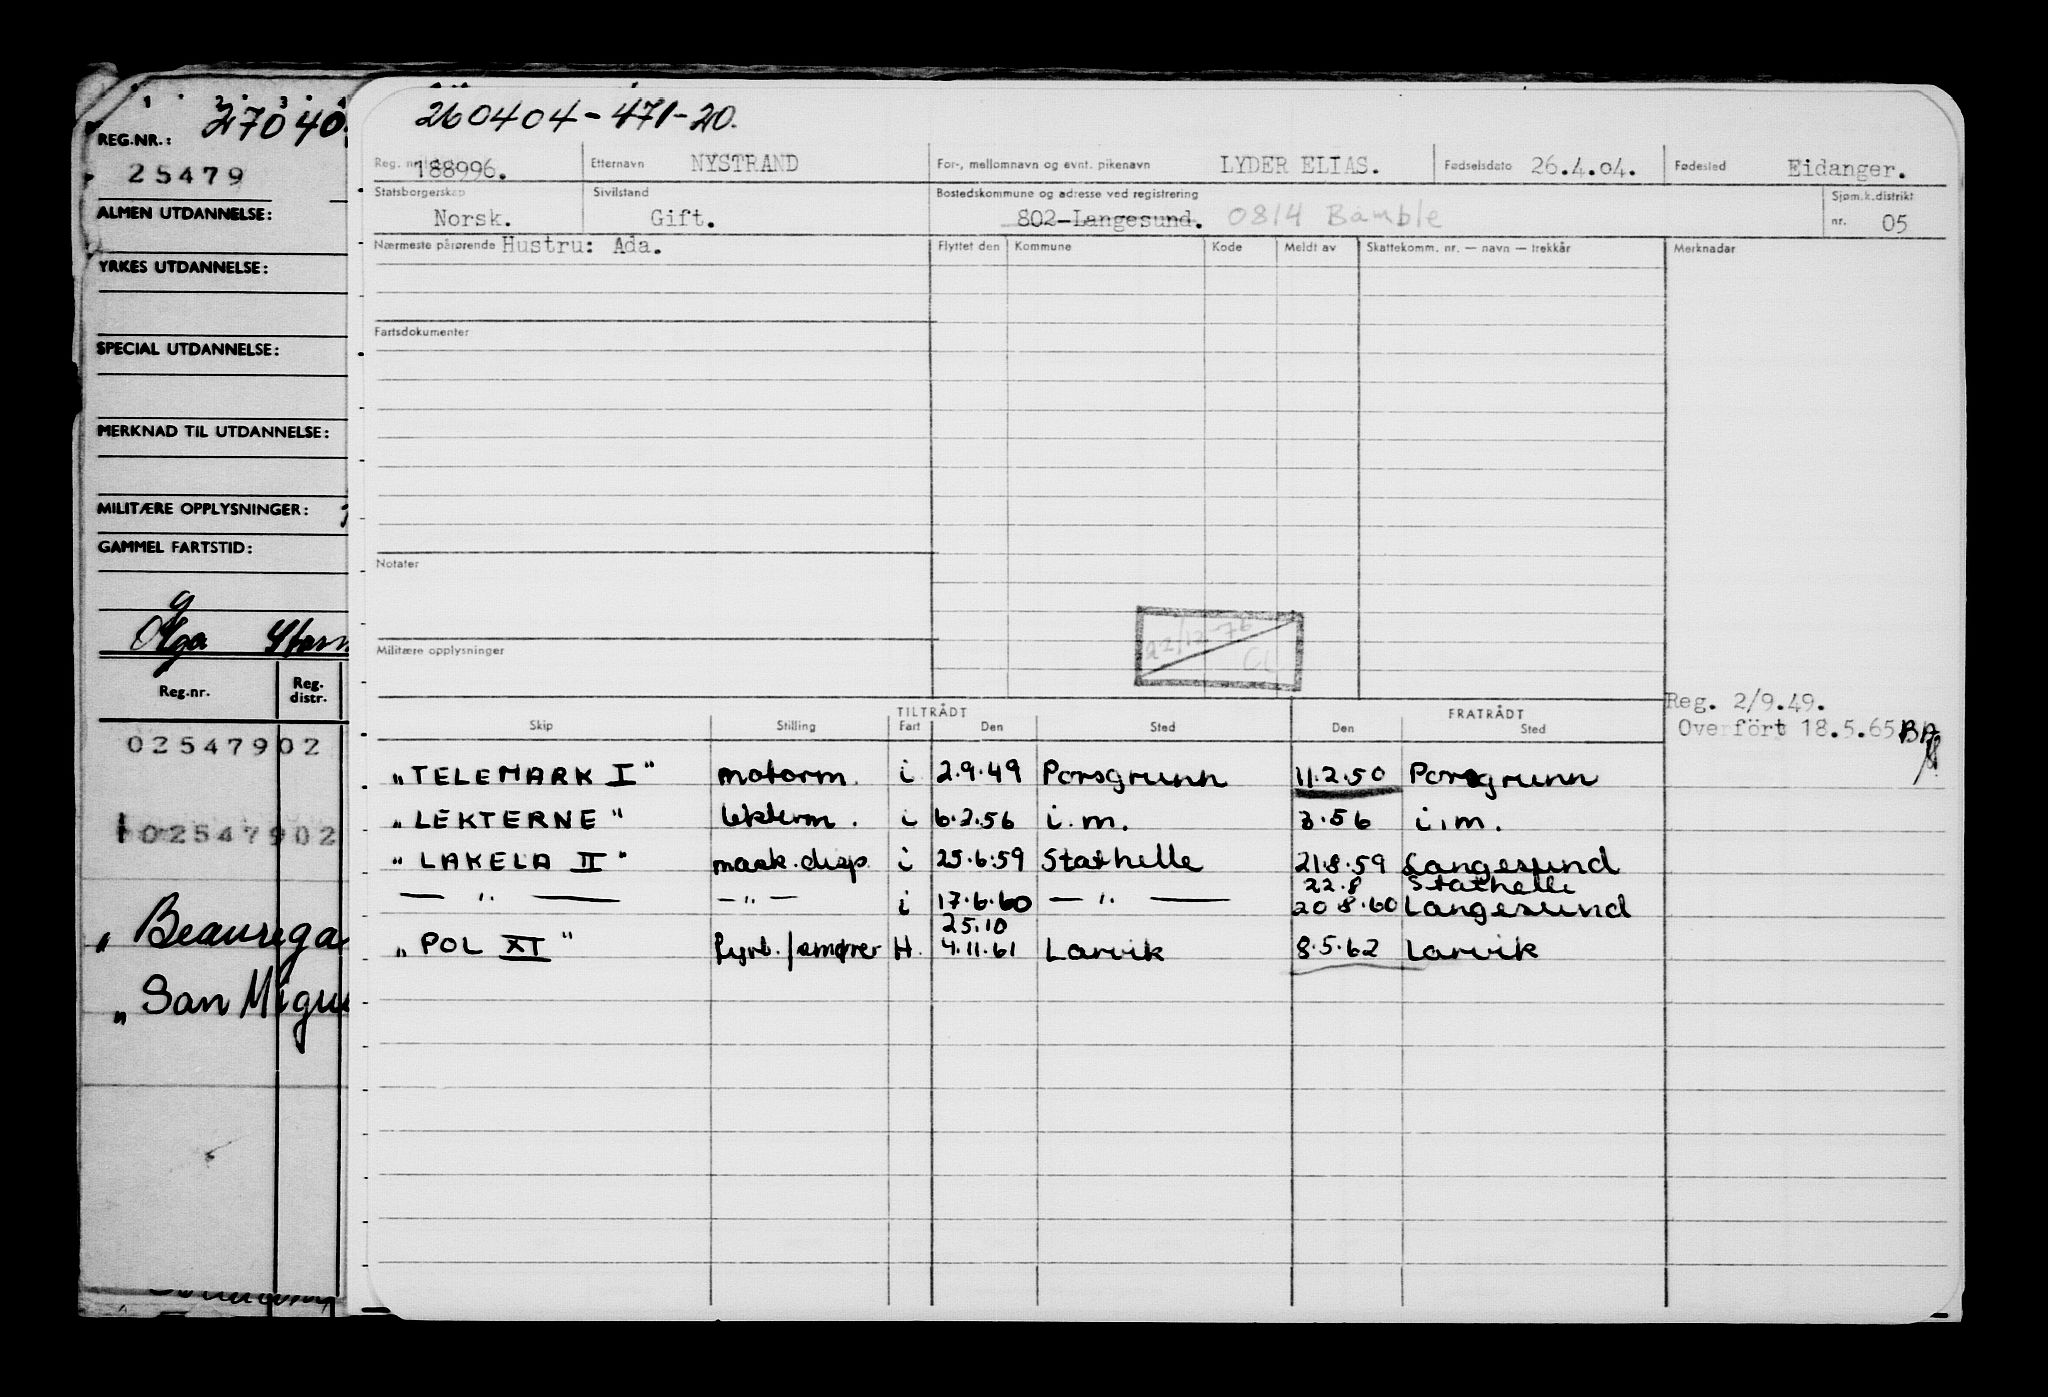 1 2 3 4
REG.NR.: 27040
25479
ALMEN UTDANNELSE:
YRKES UTDANNELSE:
SPECIAL UTDANNELSE:
MERKNAD TIL UTDANNELSE:
MILITÆRE OPPLYSNINGER:
GAMMEL FARTSTID:
Olga
Reg.nr. Reg. distr.
02547902
02547902
„ Beaurega
„ San Migu
260404-471-20.
Reg. nr. 188996. Etternavn NYSTRAND For-, mellomnavn og evnt. pikenavn LYDER ELIAS. Fødselsdato 26.4.04. Fødested Eidanger.
Statsborgerskap Norsk. Sivilstand Gift. Bostedskommune og adresse ved registrering 802-Langesund. 0814 Bamble Sjøm.k.distrikt nr. 05
Nærmeste pårørende Hustru: Ada. Flyttet den Kommune Kode Meldt av Skattekomm. nr. — navn — trekkår Merknader
Fartsdokumenter
Notater
22/12-76
Militære opplysninger
Reg. 2/9.49.
Overført 18.5.65 BA
TILTRÅDT FRATRÅDT
Skip Stilling Fart Den Sted Den Sted
„TELEMARK I" motorm. i 2.9.49 Porsgrunn 11.2.50 Porsgrunn
„LEKTERNE" lekterm. i 6.2.56 i.m. 3.56 i.m.
„LAKELA II" mask.disp. i 25.6.59 Stathelle 21.8.59 Langesund
22.8 Stathelle
— " — — " — i 17.6.60 — " — 20.8.60 Langesund
25.10
„POL XI" fyrb./smører H. 4.11.61 Larvik 8.5.62 Larvik